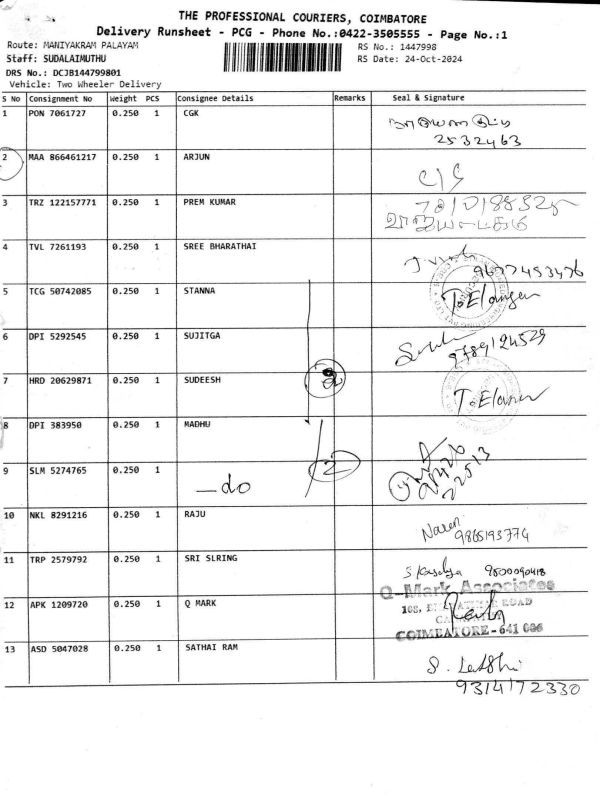 THE PROFESSIONAL COURIERS, COIMBATORE
Delivery Runsheet - PCG - Phone No.:0422-3505555 - Page No.:1
Route: MANIYAKRAM PALAYAM
RS No.: 1447998
Staff: SUDALAIMUTHU
RS Date: 24-Oct-2024
DRS No.: DCJB144799801
Vehicle: Two Wheeler Delivery
S No Consignment No Weight PCS Consignee Details Remarks Seal & Signature
1 PON 7061727 0.250 1 CGK
2532463
2 MAA 866461217 0.250 1 ARJUN
C/S
3 TRZ 122157771 0.250 1 PREM KUMAR
4 TVL 7261193 0.250 1 SREE BHARATHAI
9677453476
5 TCG 50742085 0.250 1 STANNA
6 DPI 5292545 0.250 1 SUJITGA
9789124529
7 HRD 20629871 0.250 1 SUDEESH
8 DPI 383950 0.250 1 MADHU
9 SLM 5274765 0.250 1
do
2
22513
10 NKL 8291216 0.250 1 RAJU
Naren
9865193774
11 TRP 2579792 0.250 1 SRI SLRING
9500090418
12 APK 1209720 0.250 1 Q MARK
Q-Mark Associates
ROAD
COIMBATORE - 641 006
13 ASD 5047028 0.250 1 SATHAI RAM
9314172330